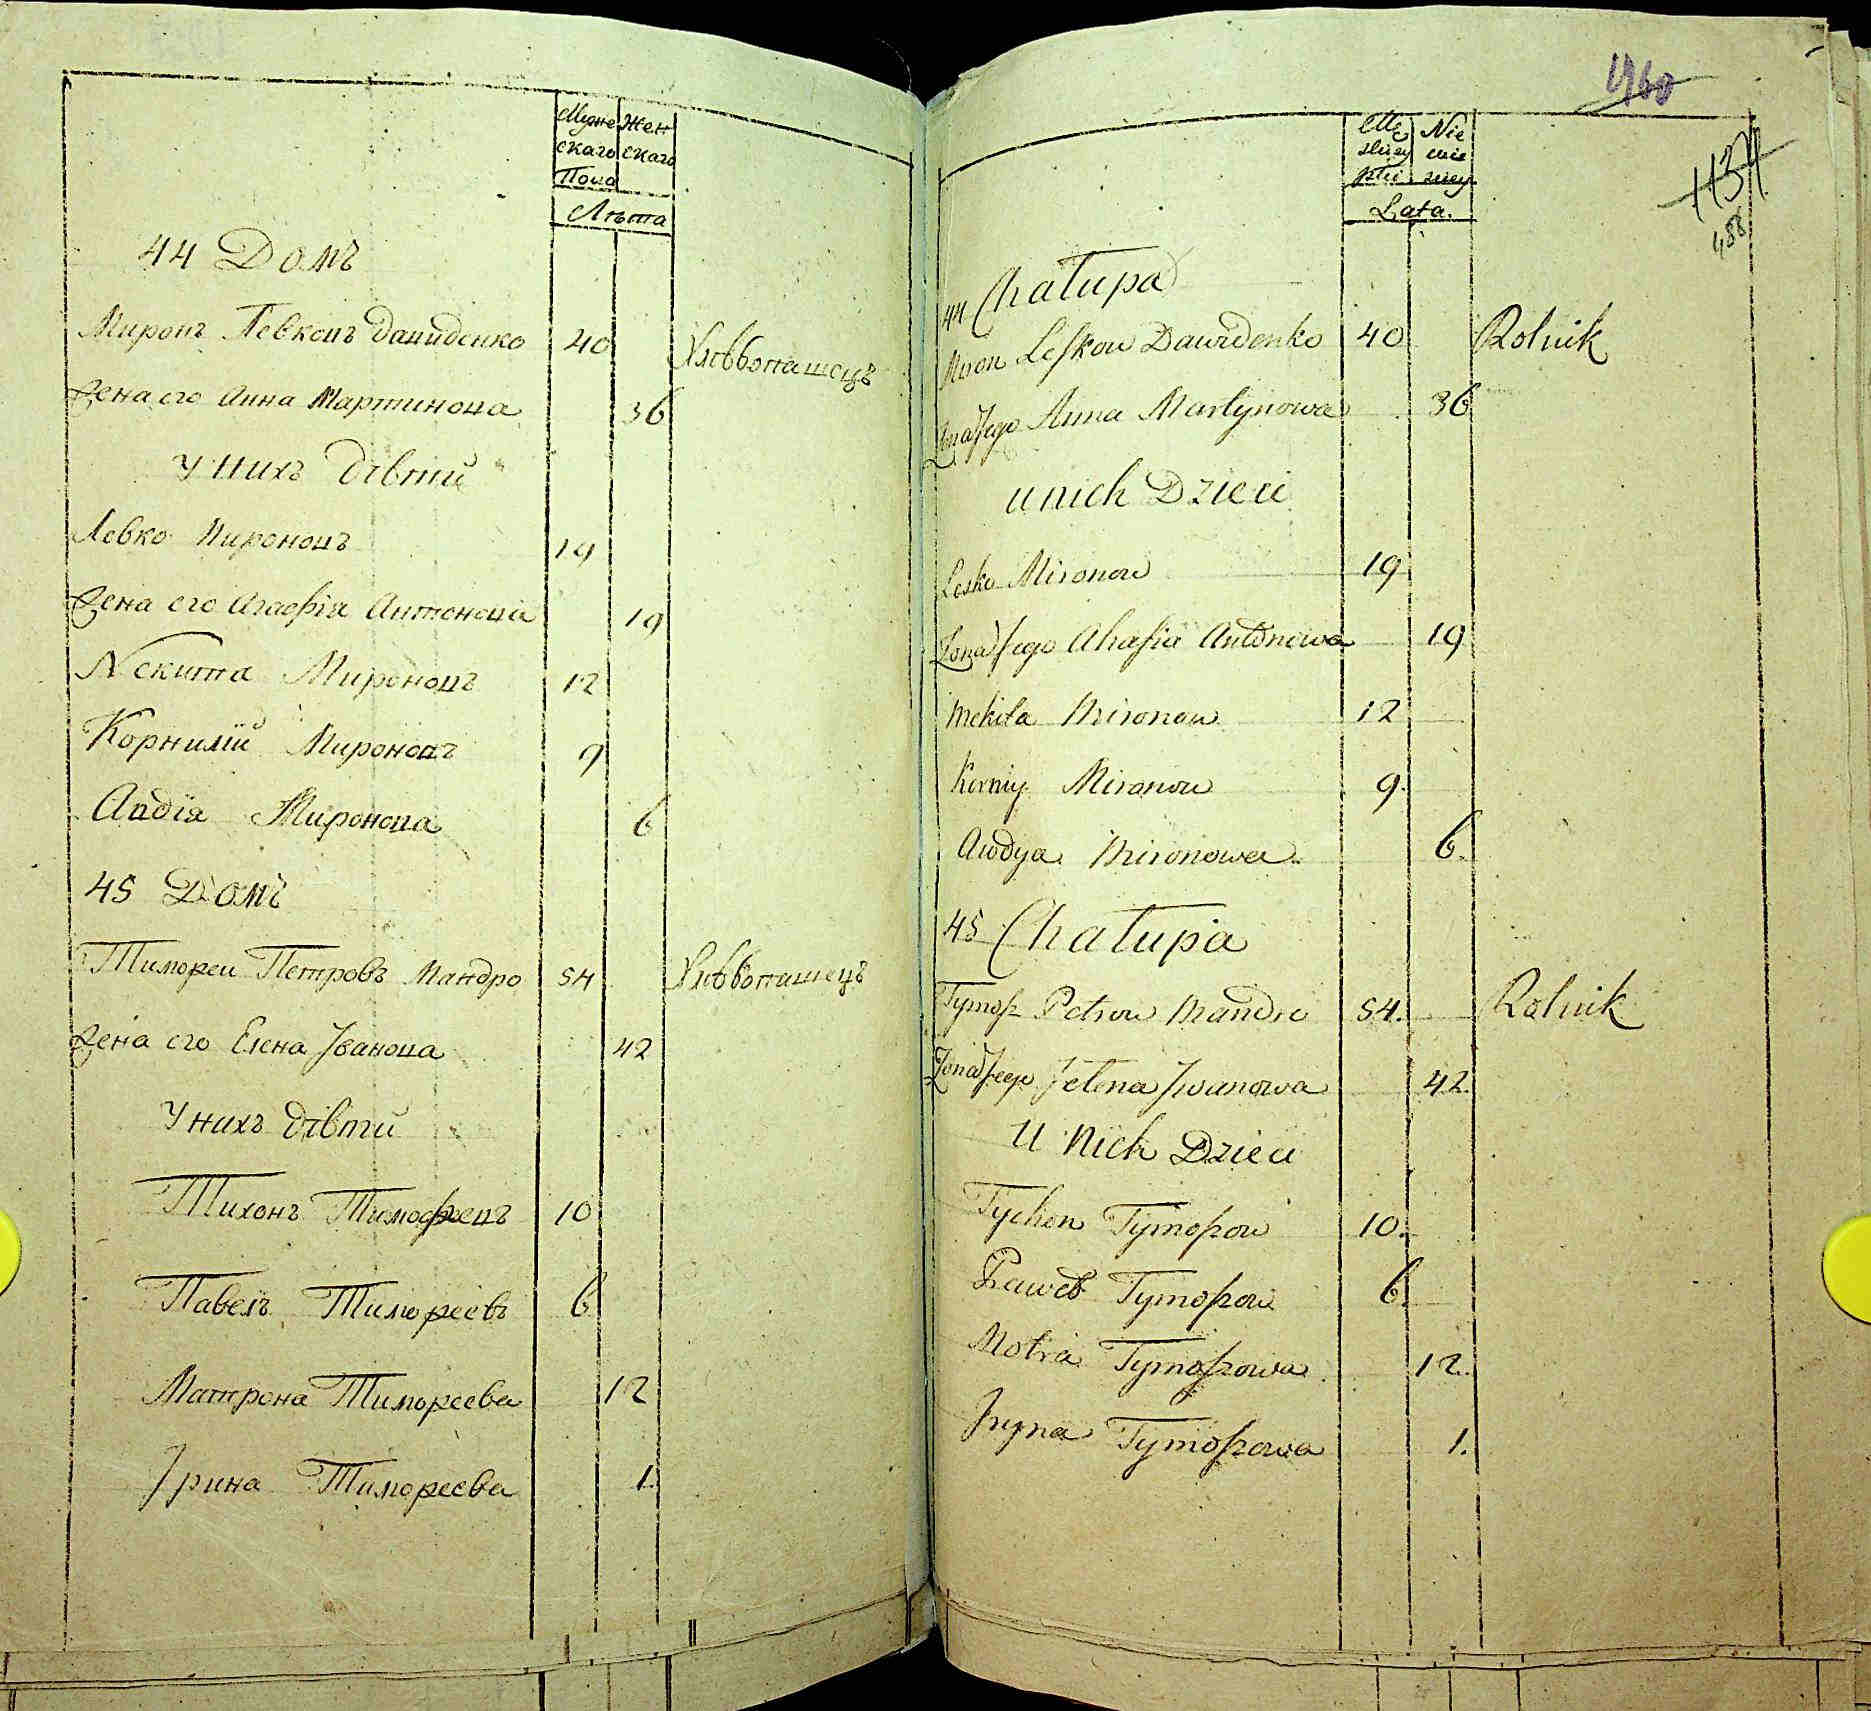 Муже Жен
скаго скаго
Пола
Лѣта
44 Домъ
Миронъ Левковъ Давиденко 40 Хлѣбопашецъ
Жена его Анна Мартинова 36
У нихъ дѣтей
Левко Мироновъ 19
Жена его Агафія Антонова 19
Никита Мироновъ 12
Корнилій Мироновъ 9
Авдія Миронова 6
45 Домъ
Тимофеи Петровъ Мандро 54 Хлѣбопашецъ
Жена его Елена Іванова 42
У нихъ дѣтей
Тихонъ Тимофеевъ 10
Павелъ Тимофеевъ 6
Матрона Тимофеева 12
Ірина Тимофеева 1.
1137
488
Lata.
44 Chałupa
Miron Leskow Dawidenko 40 Rolnik
Żona Jego Anna Martynowa 36
u nich Dzieci
Lesko Mironow 19
Żona Jego Ahafia Antonowa 19
Mekita Mironow 12
Korniy Mironow 9.
Awdya Mironowa 6.
45 Chałupa
Tymof Petrow Mandro 54. Rolnik
Żona Jego Jelena Jwanowa 42.
U nich Dzieci
Tychon Tymofiow 10.
Paweł Tymofiow 6.
Motra Tymofiowa 12.
Iryna Tymofiowa 1.